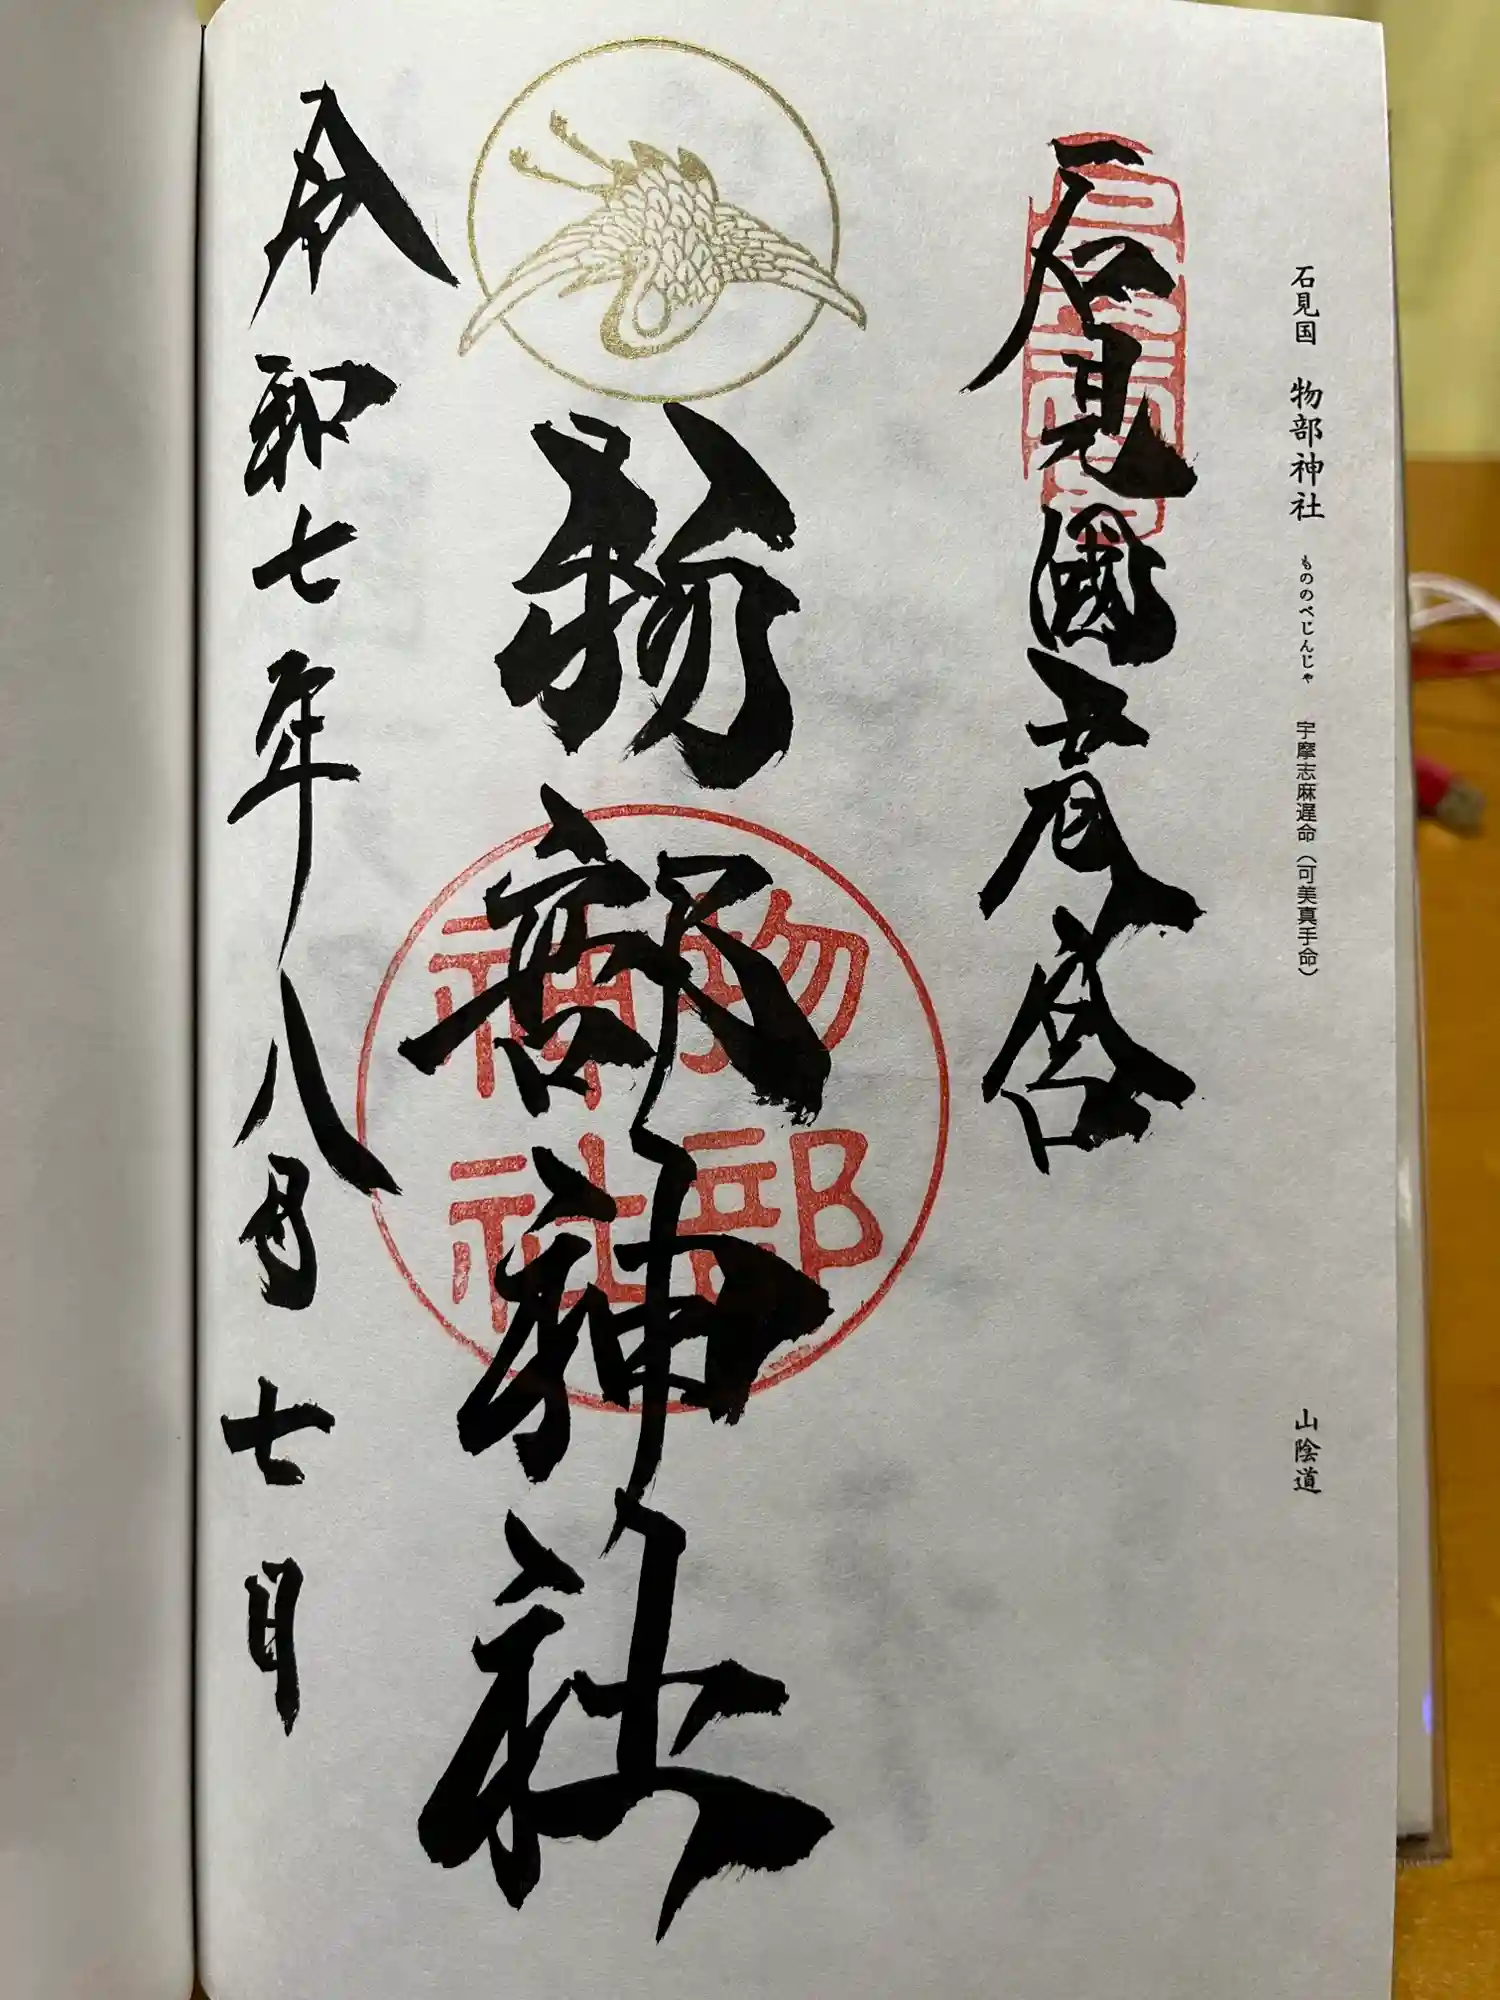 石見国 物部神社 もののべじんじゃ 宇摩志麻遅命（可美真手命） 山陰道
石見國
宮
物部神社
物部神社
令和七年八月七日